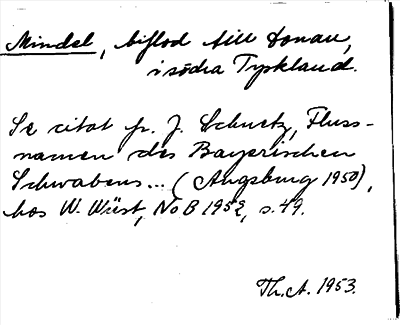 Mindel, biflod till Donau,
i södra Tyskland.
Se citat fr. J. Schnetz, Fluss-
namen des Bayerischen
Schwabens... (Augsburg 1950),
hos W. Wüst, NoB 1952, s. 49.
Th. A. 1953.